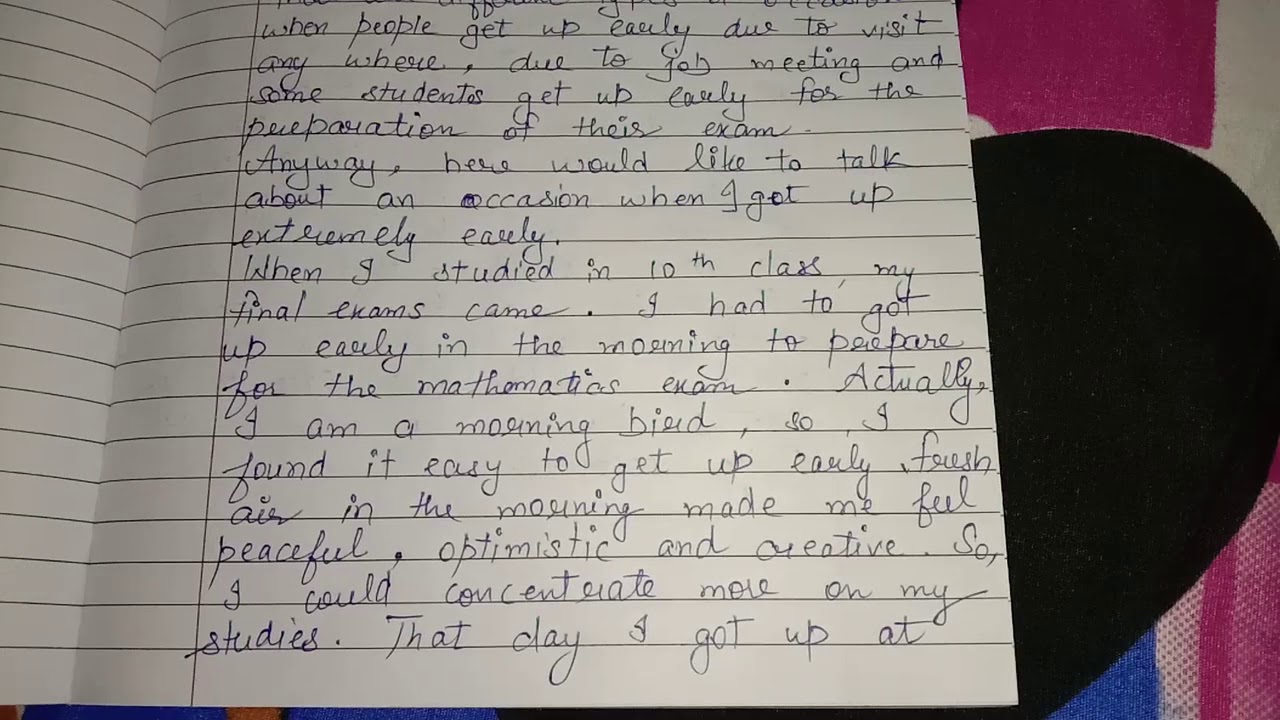 different types of occasion
when people get up early due to visit
any where, due to job meeting and
some students get up early for the
preparation of theis exam.
Anyway, here would like to talk
about an occasion when I got up
extremely early.
When I studied in 10th class, my
final exams came. I had to got
up early in the morning to prepare
for the mathematics exam. Actually,
I am a morning bird, so, I
found it easy to get up early, fresh
air in the morning made me feel
peaceful, optimistic and creative. So,
I could concentrate more on my
studies. That day I got up at